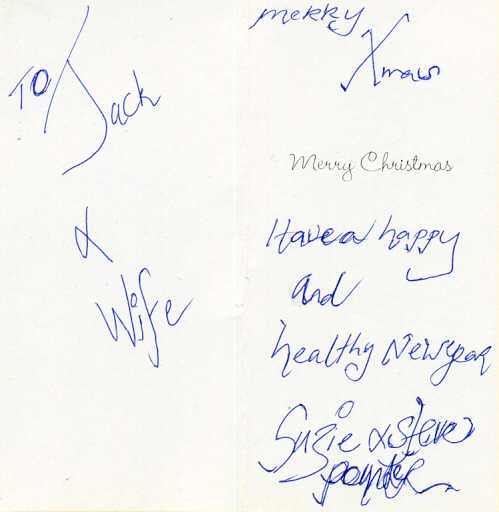 TO Jack
&
Wife
merry
Xmas
Merry Christmas
Have a happy
And
healthy New year
Suzie & Steve